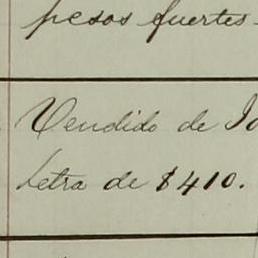 pesos fuertes.
Vendido de
letra de $410.